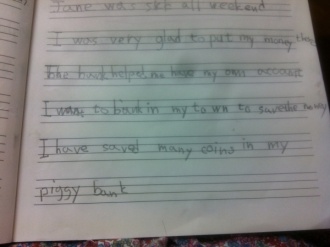 Jane was sick all weekend
I was very glad to put my money
The bank helped me have my own account
I want to bank in my town to save money
I have saved many coins in my
piggy bank